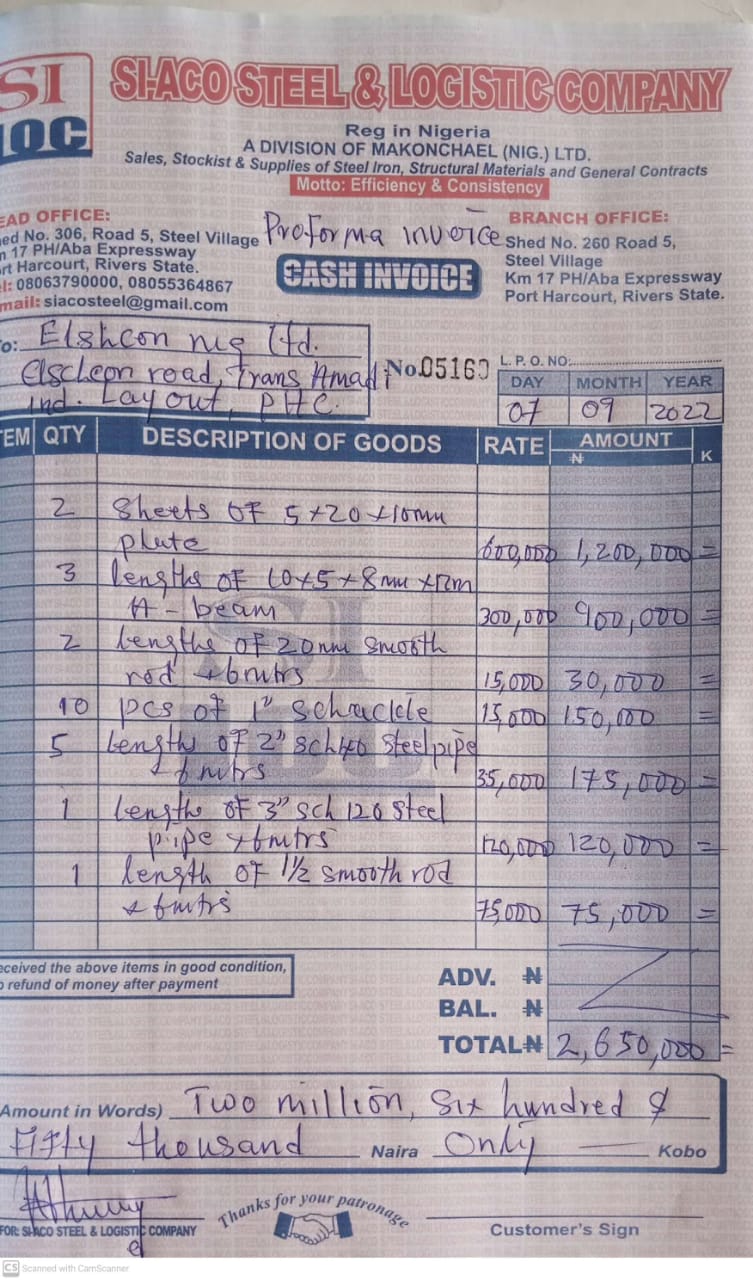 SI
IOC
SI-ACO STEEL & LOGISTIC COMPANY
Reg in Nigeria
A DIVISION OF MAKONCHAEL (NIG.) LTD.
Sales, Stockist & Supplies of Steel Iron, Structural Materials and General Contracts
Motto: Efficiency & Consistency
EAD OFFICE:
ed No. 306, Road 5, Steel Village
n 17 PH/Aba Expressway
rt Harcourt, Rivers State.
el: 08063790000, 08055364867
mail: siacosteel@gmail.com
Proforma invoice
CASH INVOICE
BRANCH OFFICE:
Shed No. 260 Road 5,
Steel Village
Km 17 PH/Aba Expressway
Port Harcourt, Rivers State.
o: Elshcon nig Ltd.
Elschcon road, Trans Amadi
ind. Layout, PHC.
No. 05160
L. P. O. NO:
DAY MONTH YEAR
07 09 2022
EM QTY DESCRIPTION OF GOODS RATE AMOUNT
₦ K
2 Sheets of 5x20x10mm
plate 600,000 1,200,000 =
3 lengths of 10x5x8mm x12m
H-beam 300,000 900,000 =
2 lengths of 20mm smooth
rod x6mtrs 15,000 30,000 =
10 pcs of 1" schackle 15,000 150,000 =
5 lengths of 2" sch40 steel pipe
x 6mtrs 35,000 175,000 =
1 lengths of 3" sch 120 steel
pipe x6mtrs 120,000 120,000 =
1 length of 1½ smooth rod
x 6mtrs 75,000 75,000 =
eceived the above items in good condition,
o refund of money after payment
ADV. ₦
BAL. ₦
TOTAL ₦ 2,650,000 =
Amount in Words) Two million, Six hundred &
Fifty thousand Naira Only Kobo
Thanks for your patronage
FOR: SI-ACO STEEL & LOGISTIC COMPANY
Customer's Sign
CS Scanned with CamScanner